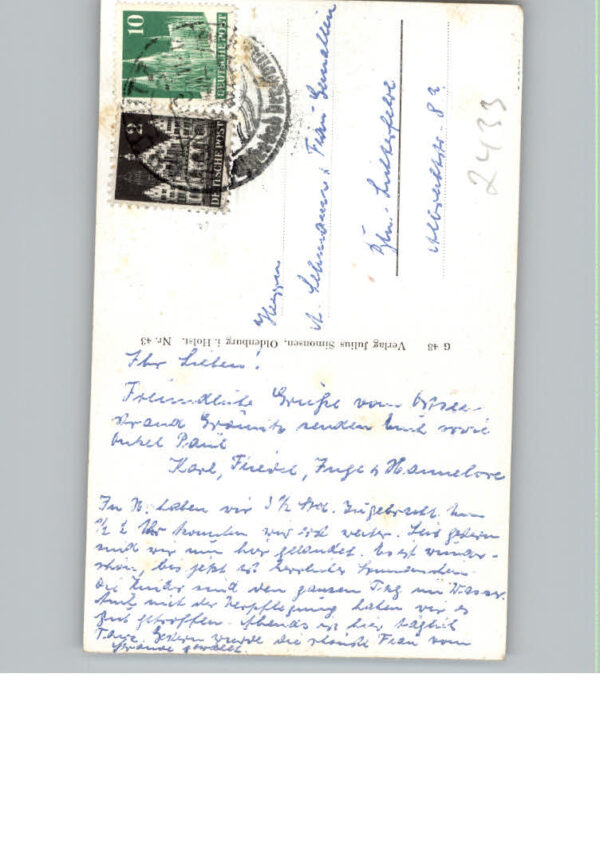 10
DEUTSCHE POST
2
DEUTSCHE POST
2433
Herrn
A. Lehmann u. Frau Gemahlin
Bln.-Lichterfelde
Albrechtstr. 82
G 48 Verlag Julius Simonsen, Oldenburg i. Holst. Nr. 43
Ihr Lieben!
Freundliche Grüße vom Ostsee-
strand Grömitz senden Euch sowie
Onkel Paul
Karl, Friedel, Inge u. Hannelore
In N. haben wir 3 ½ Std. zugebracht. Um
½ 2 Uhr konnten wir erst weiter. Seit gestern
sind wir nun hier gelandet. Es ist wunder-
schön, bis jetzt ist herrlicher Sonnenschein.
Die Kinder sind den ganzen Tag im Wasser.
Auch mit der Verpflegung haben wir es
gut getroffen. Abends ist hier täglich
Tanz. Gestern wurde die schönste Frau vom
Strande gewählt.